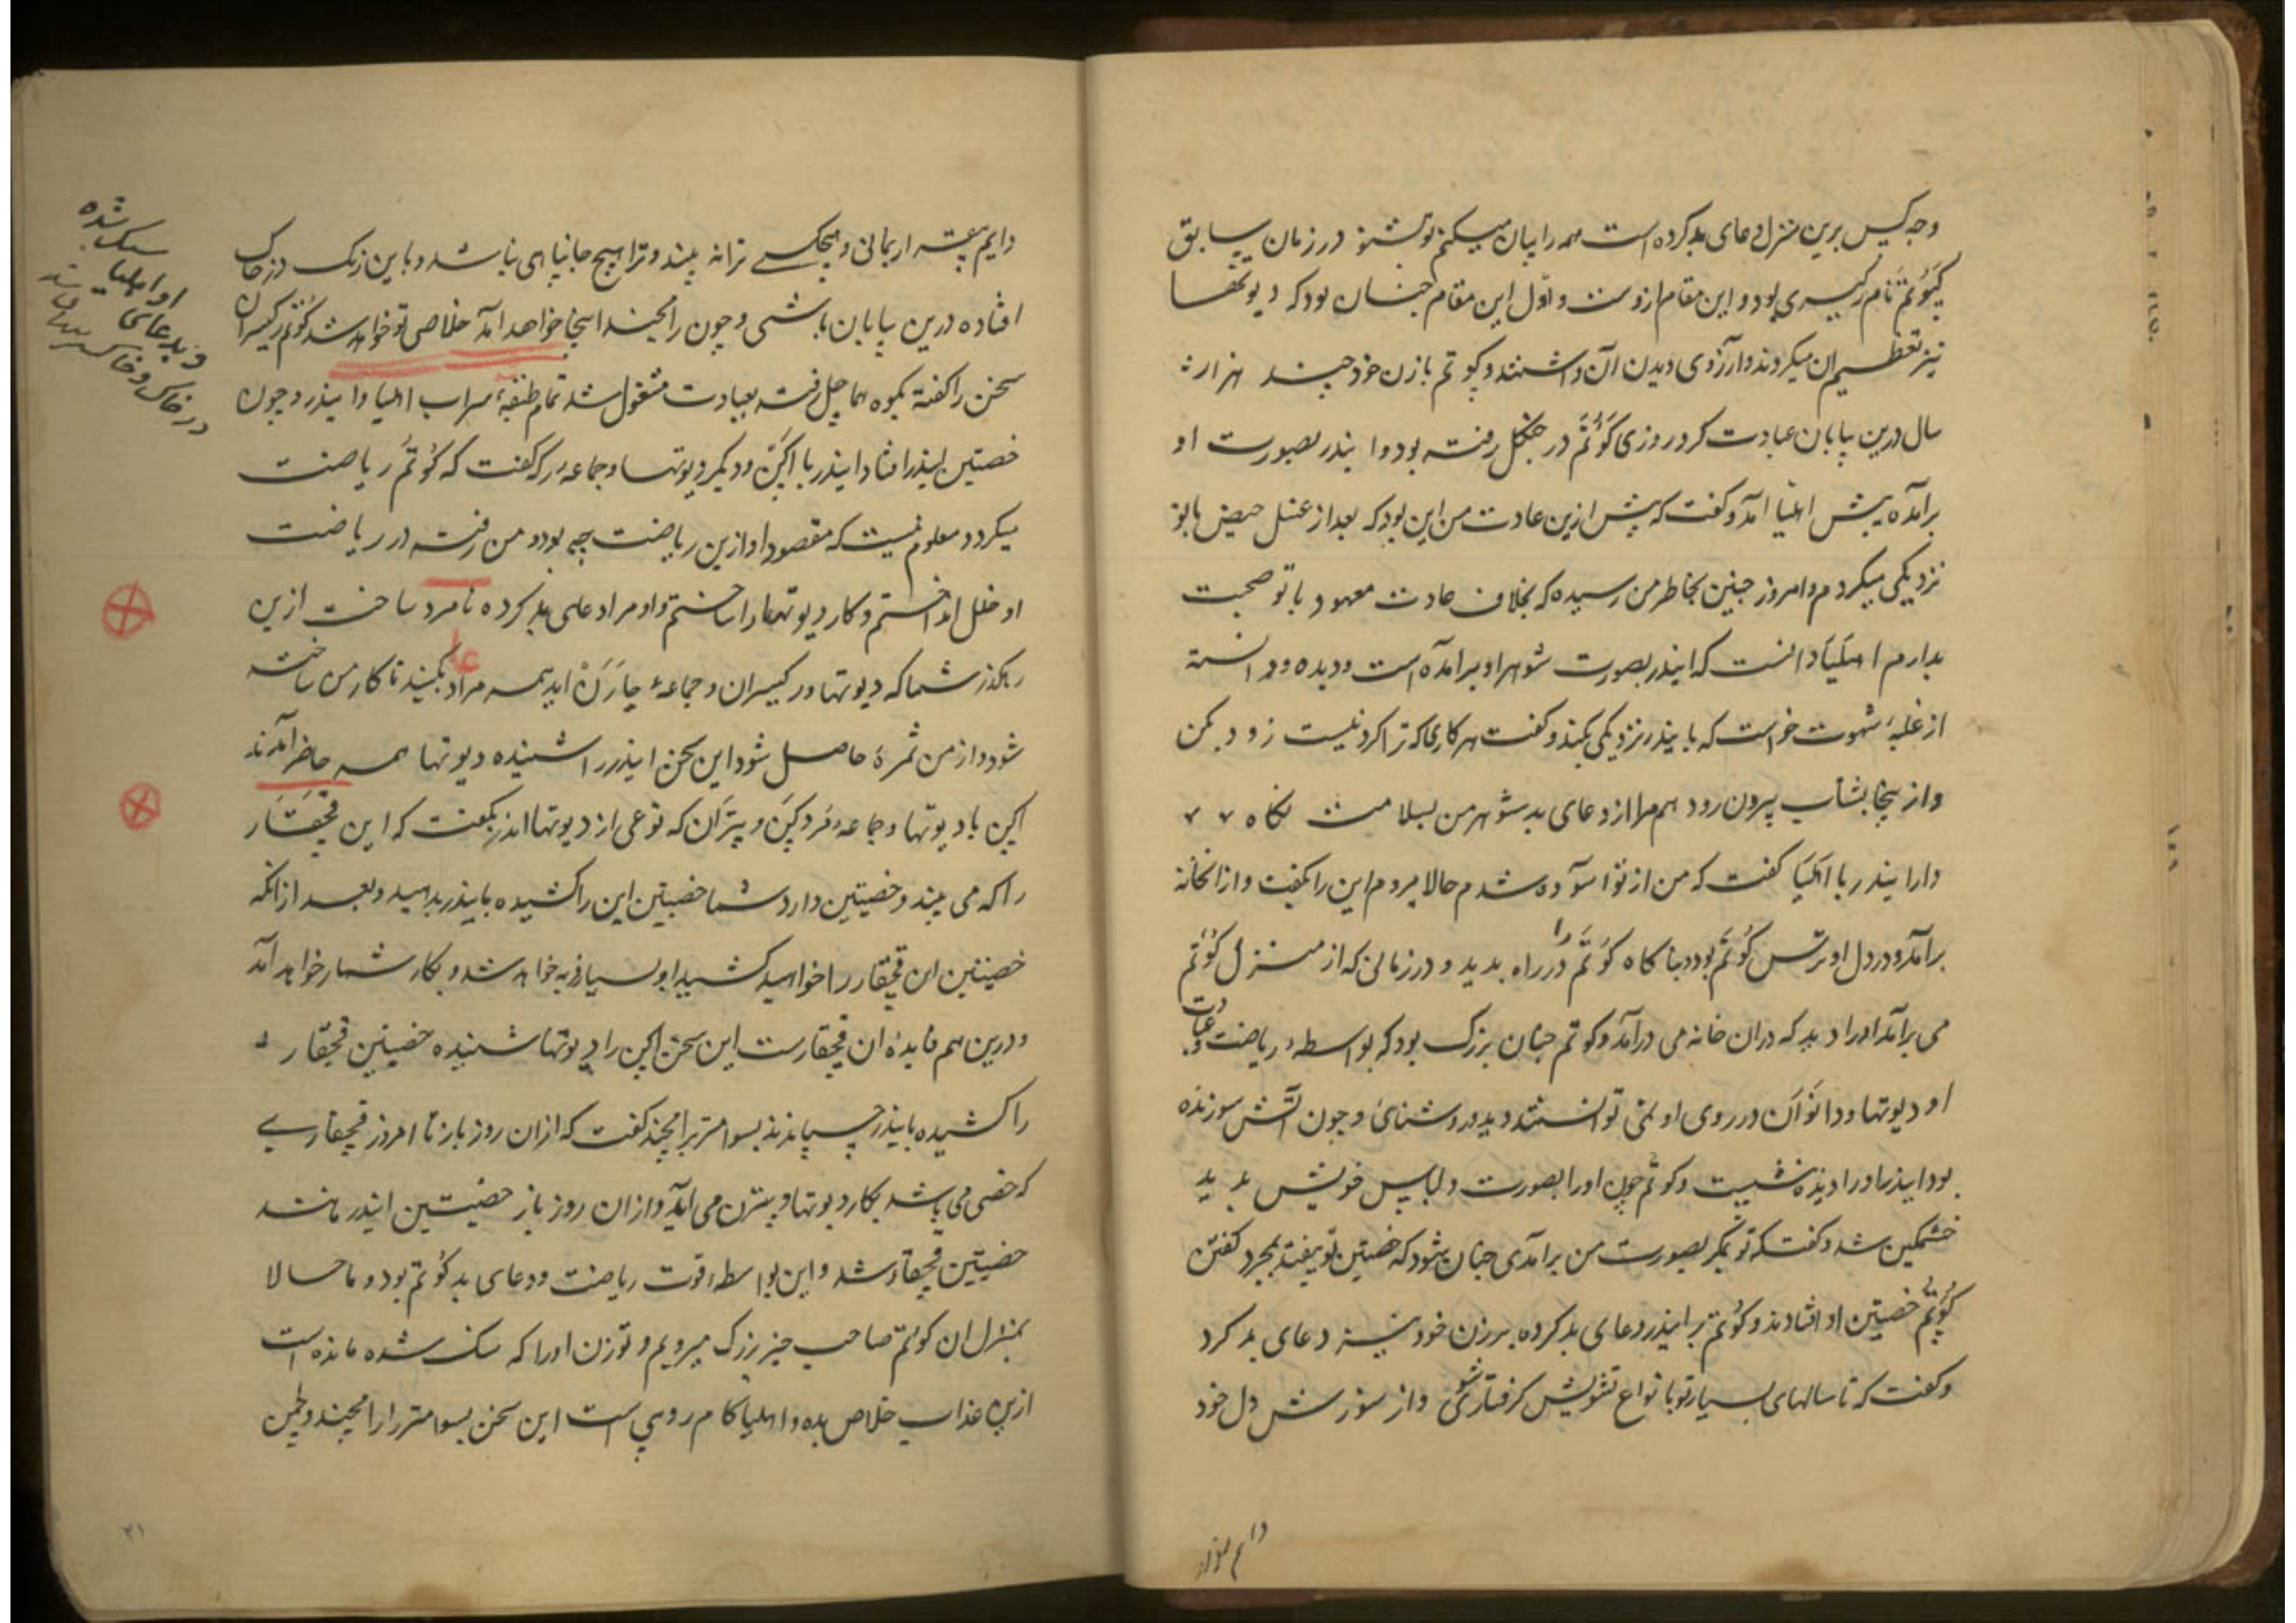 و چه کس برین منزل دعای بد کرده است همه را بیان میکنم تو بشنو در زمان سابق
کَوُتَم نام رکیسری بود و این مقام ازوست و اول این مقام چنان بود که دیوتها
نیز تعظیم ان میکردند و ارزوی دیدن آن داشتند و کوتم با زن خود چند هزار
سال درین بیابان عبادت کرد روزی کَوُتَم در جنکل رفته بود و ایندر بصورت او
برآمده پیش اهلیا آمد و کفت که پیش ازین عادت من این بود که بعد از غسل حیض با تو
نزدیکی میکردم و امروز چنین بخاطر من رسیده که بخلاف عادت معهود با تو صحبت
بدارم اهلیا دانست که ایندر بصورت شوهر او برآمده است و دیده و دانسته
از غلبهٔ شهوت خواست که با ایندر نزدیکی بکند و کفت هر کاری که ترا کردنیست زود بکن
و از ینجا بشتاب بیرون رو و هم مرا از دعای بد شوهر من بسلامت نکاه
دار ایندر با اهلیا کفت که من از تو آسوده شدم حالا میروم این را بکفت و از انخانه
برآمد و در دل او ترس کوتم بود و بناکاه کوتم را در راه بدید و در زمانی که از منزل کوتم
می برآمد او را دید که دران خانه می درآمد و کوتم چنان بزرک بود که بواسطهٔ ریاضت و عبادت
او دیوتها و دانوان در روی او نمی توانستند دید و روشنائی و چون آتش سوزنده
بود ایندر او را دیده نشست و کوتم چون او را بصورت و لباس خویش بدید
خشمکین شد و کفت که تو مکر بصورت من برآمدی چنان بشود که خصیتین تو بیفتد بمجرد کفتن
کوتم خصیتین او افتادند و کوتم بر ایندر دعای بد کرده بر زن خود نیز دعای بد کرد
و کفت که تا سالهای بسیار تو بانواع تشویش کرفتار شوی و از سوزش دل خود
دایم بقرار
دایم بیقرار بمانی و هیچکسے ترا نه بیند و ترا هیچ جا نیاهی نباشد و باین رنک در خاک
افتاده درین بیابان باشی و چون رامچند اینجا خواهد آمد خلاصی تو خواهد شد کوتم رکیسر ان
سخن را کفته بکوه هماچل رفته بعبادت مشغول شد
خصیتین ایندر افتاد ایندر با اکن و دیکر دیوتها و جماعهٔ کفت که کوتم ریاضت
میکرد و معلوم نیست که مقصود او ازین ریاضت چه بود و من رفته در ریاضت
او خلل انداختم و کار دیوتها را ساختم و او مرا دعای بد کرده نامرد ساخت ازین
رهکذر شما که دیوتها و رکیسران و جماعهٔ چارَن اید همه مرا دعا بکنید تا کار من ساخته
شود و از من ثمرهٔ حاصل شود این سخن ایندر را شنیده دیوتها همه حاضر آمدند
اکن با دیوتها و جماعهٔ مَردکَن و پتران که نوعی از دیوتها اند بکفت که این قچقار
را که می بیند و خصیتین دارد شما خصیتین این را کشیده با ایندر بدهید و بعد از انکه
خصیتین ان قچقار را خواهید کشید او بسیار فربه خواهد شد و بکار شما خواهد آمد
و درین هم فایدهٔ ان قچقار است این سخن اکن را دیوتها شنیده خصیتین قچقار
را کشیده با ایندر چسپانیدند بسوامتر برامچند کفت که ازان روز باز تا امروز قچقارے
که خصی می باشد بکار دیوتها و پتران می آید و ازان روز باز خصیتین ایندر مانند
خصیتین قچقار شد و این بواسطهٔ قوت ریاضت و دعای بد کوتم بود و ما حالا
بمنزل ان کوتم صاحب چیز بزرک میرویم و تو زن او را که سنک شده مانده است
ازین عذاب خلاص بده و اهلیا کام روپی است این سخن بسوامتر را رامچند و لچمن
سنک شده
او اهلیا
و بدعای
در خاک و خاکستر
عا
۲۱